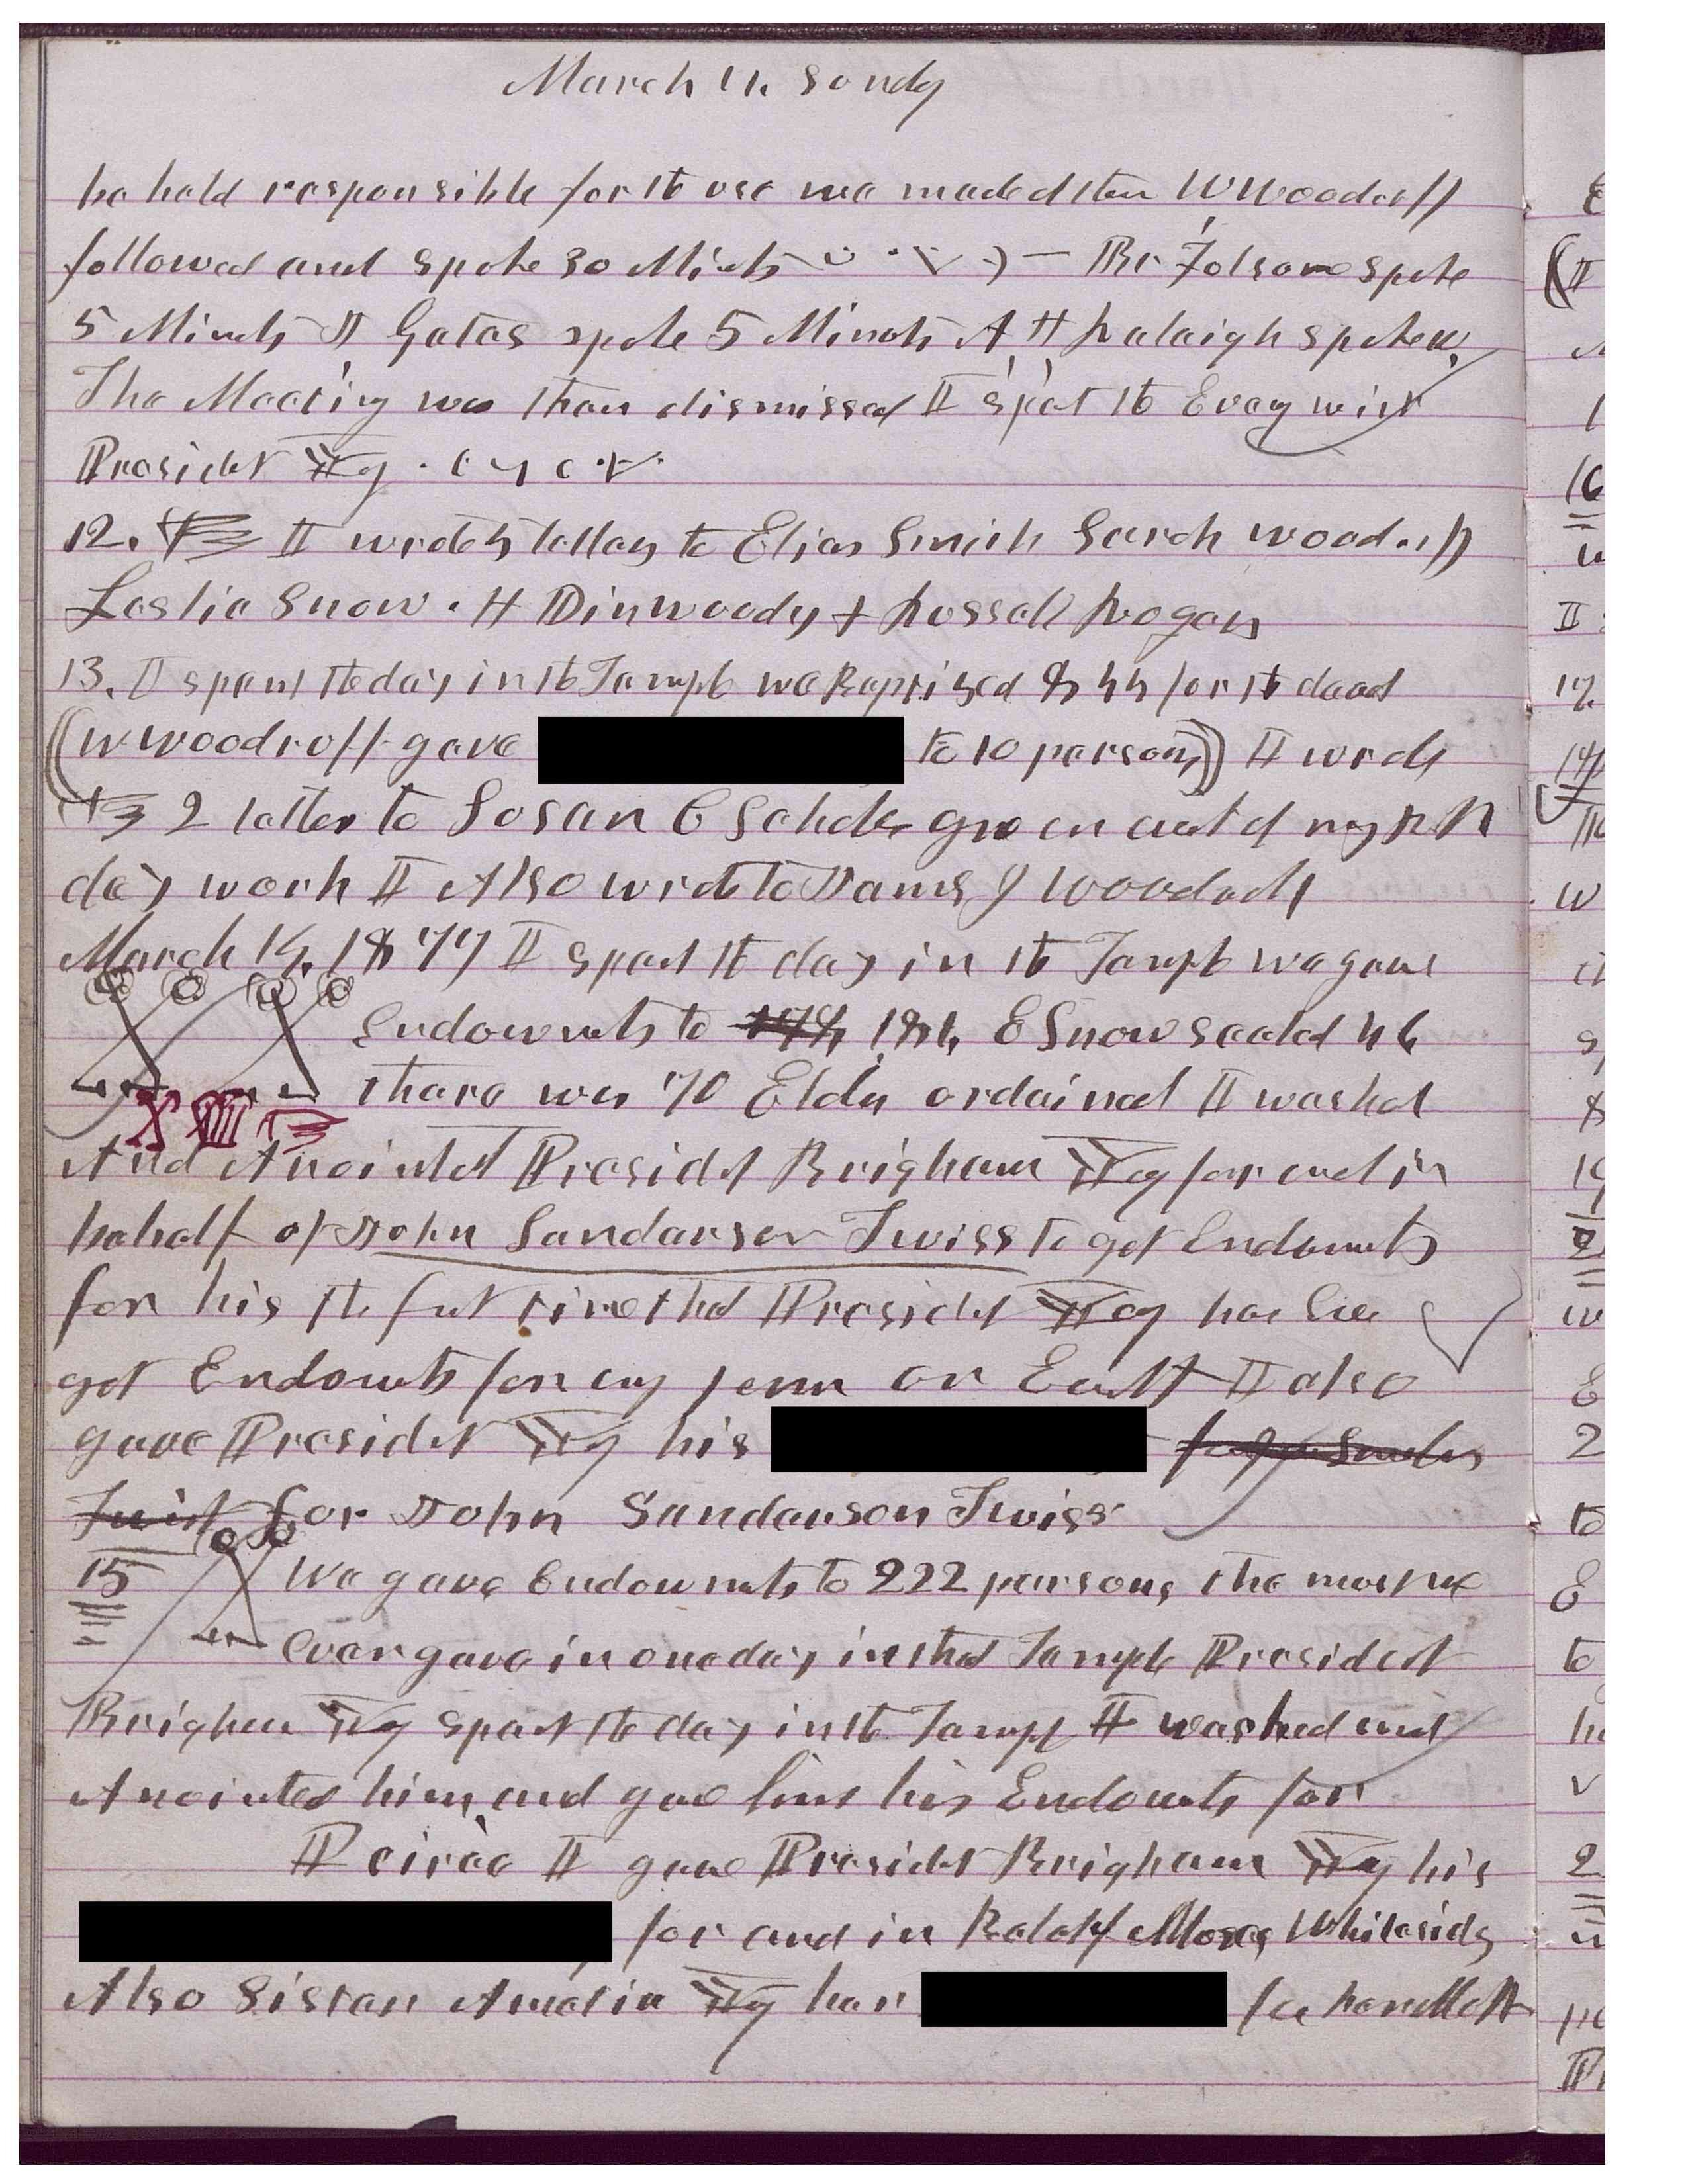 March 11. Sondy
be held responsible for the use we made of them W Woodruff
followed and spoke 30 Minuts Br Folsome spoke
5 Minuts J Gates spoke 5 Minuts A H Raleigh spoke
The Meeting was then dismissed I spent the Eveng with
President Yg
12. I wrote 5 letters to Elias Smith Sarah Woodruff
Leslie Snow. H Dinwoody + Russell Rogers
13. I spent the day in the Temple we Baptized for the dead
(W Woodruff gave to 10 persons) I wrote
2 letters to Susan C account of my
days work I Also wrote to James J Woodruff
March 14, 1877 I spent the day in the Temple we gave
Endowments to E Snow sealed 46
there was 70 Elders ordained I washed
And Anointed President Brigham Yg for and in
behalf of John Sanderson Twiss to get Endowments
for his the first time that President Yg has ever
got Endowments for any person on Earth I also
gave President Yg his
Twist for John Sanderson Twiss
15 We gave Endowments to 222 persons, the most we
ever gave in one day in that Temple President
Brigham Yg spent the day in the Temple I washed and
Anointed him and gave him his Endowments for
Peirce I gave President Brigham Yg his
for and in Behalf Moses Whitesides
Also Sister Amelia Yg her for her Mother